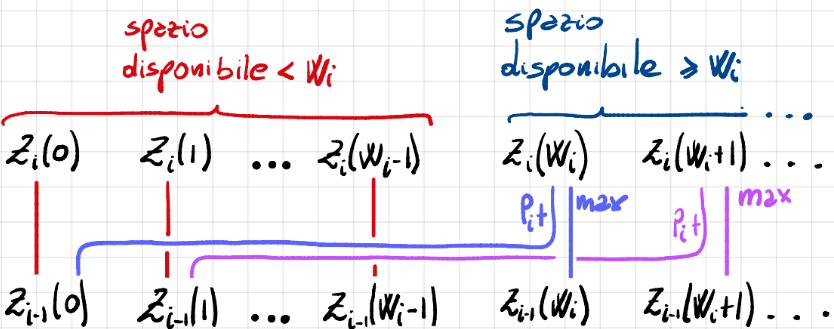 spazio
disponibile < Wᵢ
spazio
disponibile ≥ Wᵢ
Zᵢ(0) Zᵢ(1) ... Zᵢ(Wᵢ-1) Zᵢ(Wᵢ) Zᵢ(Wᵢ+1) ....
Pᵢ+ max Pᵢ+ max
Zᵢ₋₁(0) Zᵢ₋₁(1) ... Zᵢ₋₁(Wᵢ-1) Zᵢ₋₁(Wᵢ) Zᵢ₋₁(Wᵢ+1) ...